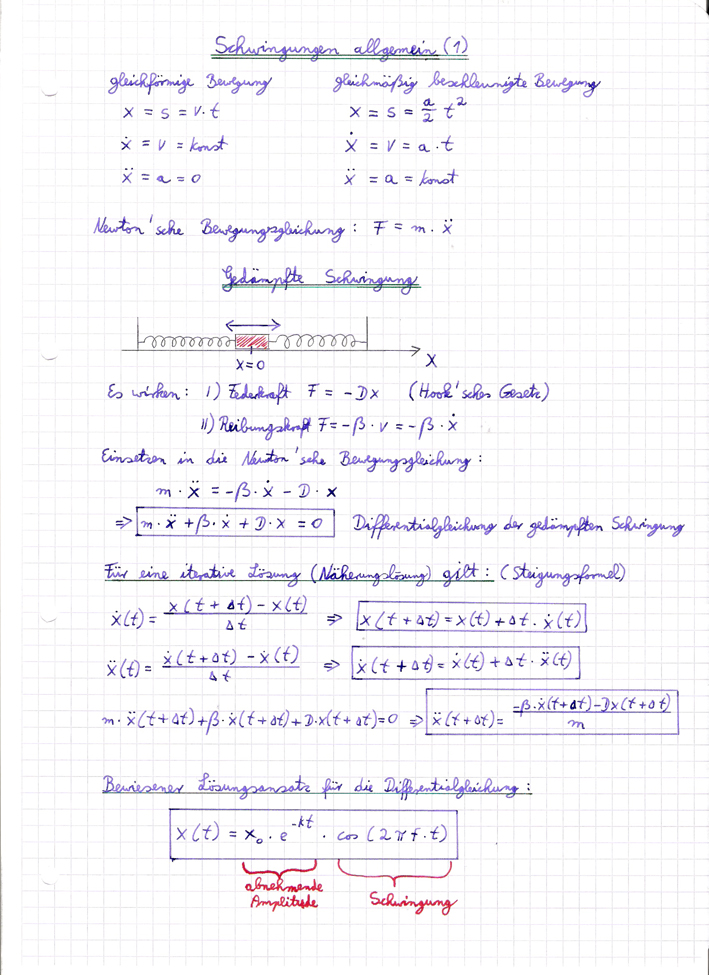 Schwingungen allgemein (1)
gleichförmige Bewegung gleichmäßig beschleunigte Bewegung
x = s = v·t x = s = a/2 t²
ẋ = v = konst ẋ = v = a·t
ẍ = a = 0 ẍ = a = konst
Newton'sche Bewegungsgleichung: F = m·ẍ
Gedämpfte Schwingung
x=0 x
Es wirken: I) Federkraft F = -Dx (Hook'sches Gesetz)
II) Reibungskraft F = -β·v = -β·ẋ
Einsetzen in die Newton'sche Bewegungsgleichung:
m·ẍ = -β·ẋ - D·x
=> m·ẍ + β·ẋ + D·x = 0 Differentialgleichung der gedämpften Schwingung
Für eine iterative Lösung (Näherungslösung) gilt: (Steigungsformel)
ẋ(t) = (x(t+Δt) - x(t))/Δt => x(t+Δt) = x(t) + Δt·ẋ(t)
ẍ(t) = (ẋ(t+Δt) - ẋ(t))/Δt => ẋ(t+Δt) = ẋ(t) + Δt·ẍ(t)
m·ẍ(t+Δt) + β·ẋ(t+Δt) + D·x(t+Δt) = 0 => ẍ(t+Δt) = (-β·ẋ(t+Δt) - Dx(t+Δt))/m
Bewiesener Lösungsansatz für die Differentialgleichung:
x(t) = x₀·e^(-kt)·cos(2πf·t)
abnehmende Amplitude Schwingung